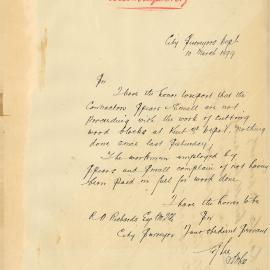 City Surveyors Dept
10 March 1899
Sir
I have the honor to report that the
Contractors Spears & Small are not
Proceeding with the work of cutting
wood blocks at Kent St depot, Nothing
done since last Saturday.
The workmen employed by
Spears and Small complain of not having
been paid in full for work done
I have the honor to be
R W Richards Esq M.I.C.E. Sir
City Surveyor Your obedient Servant